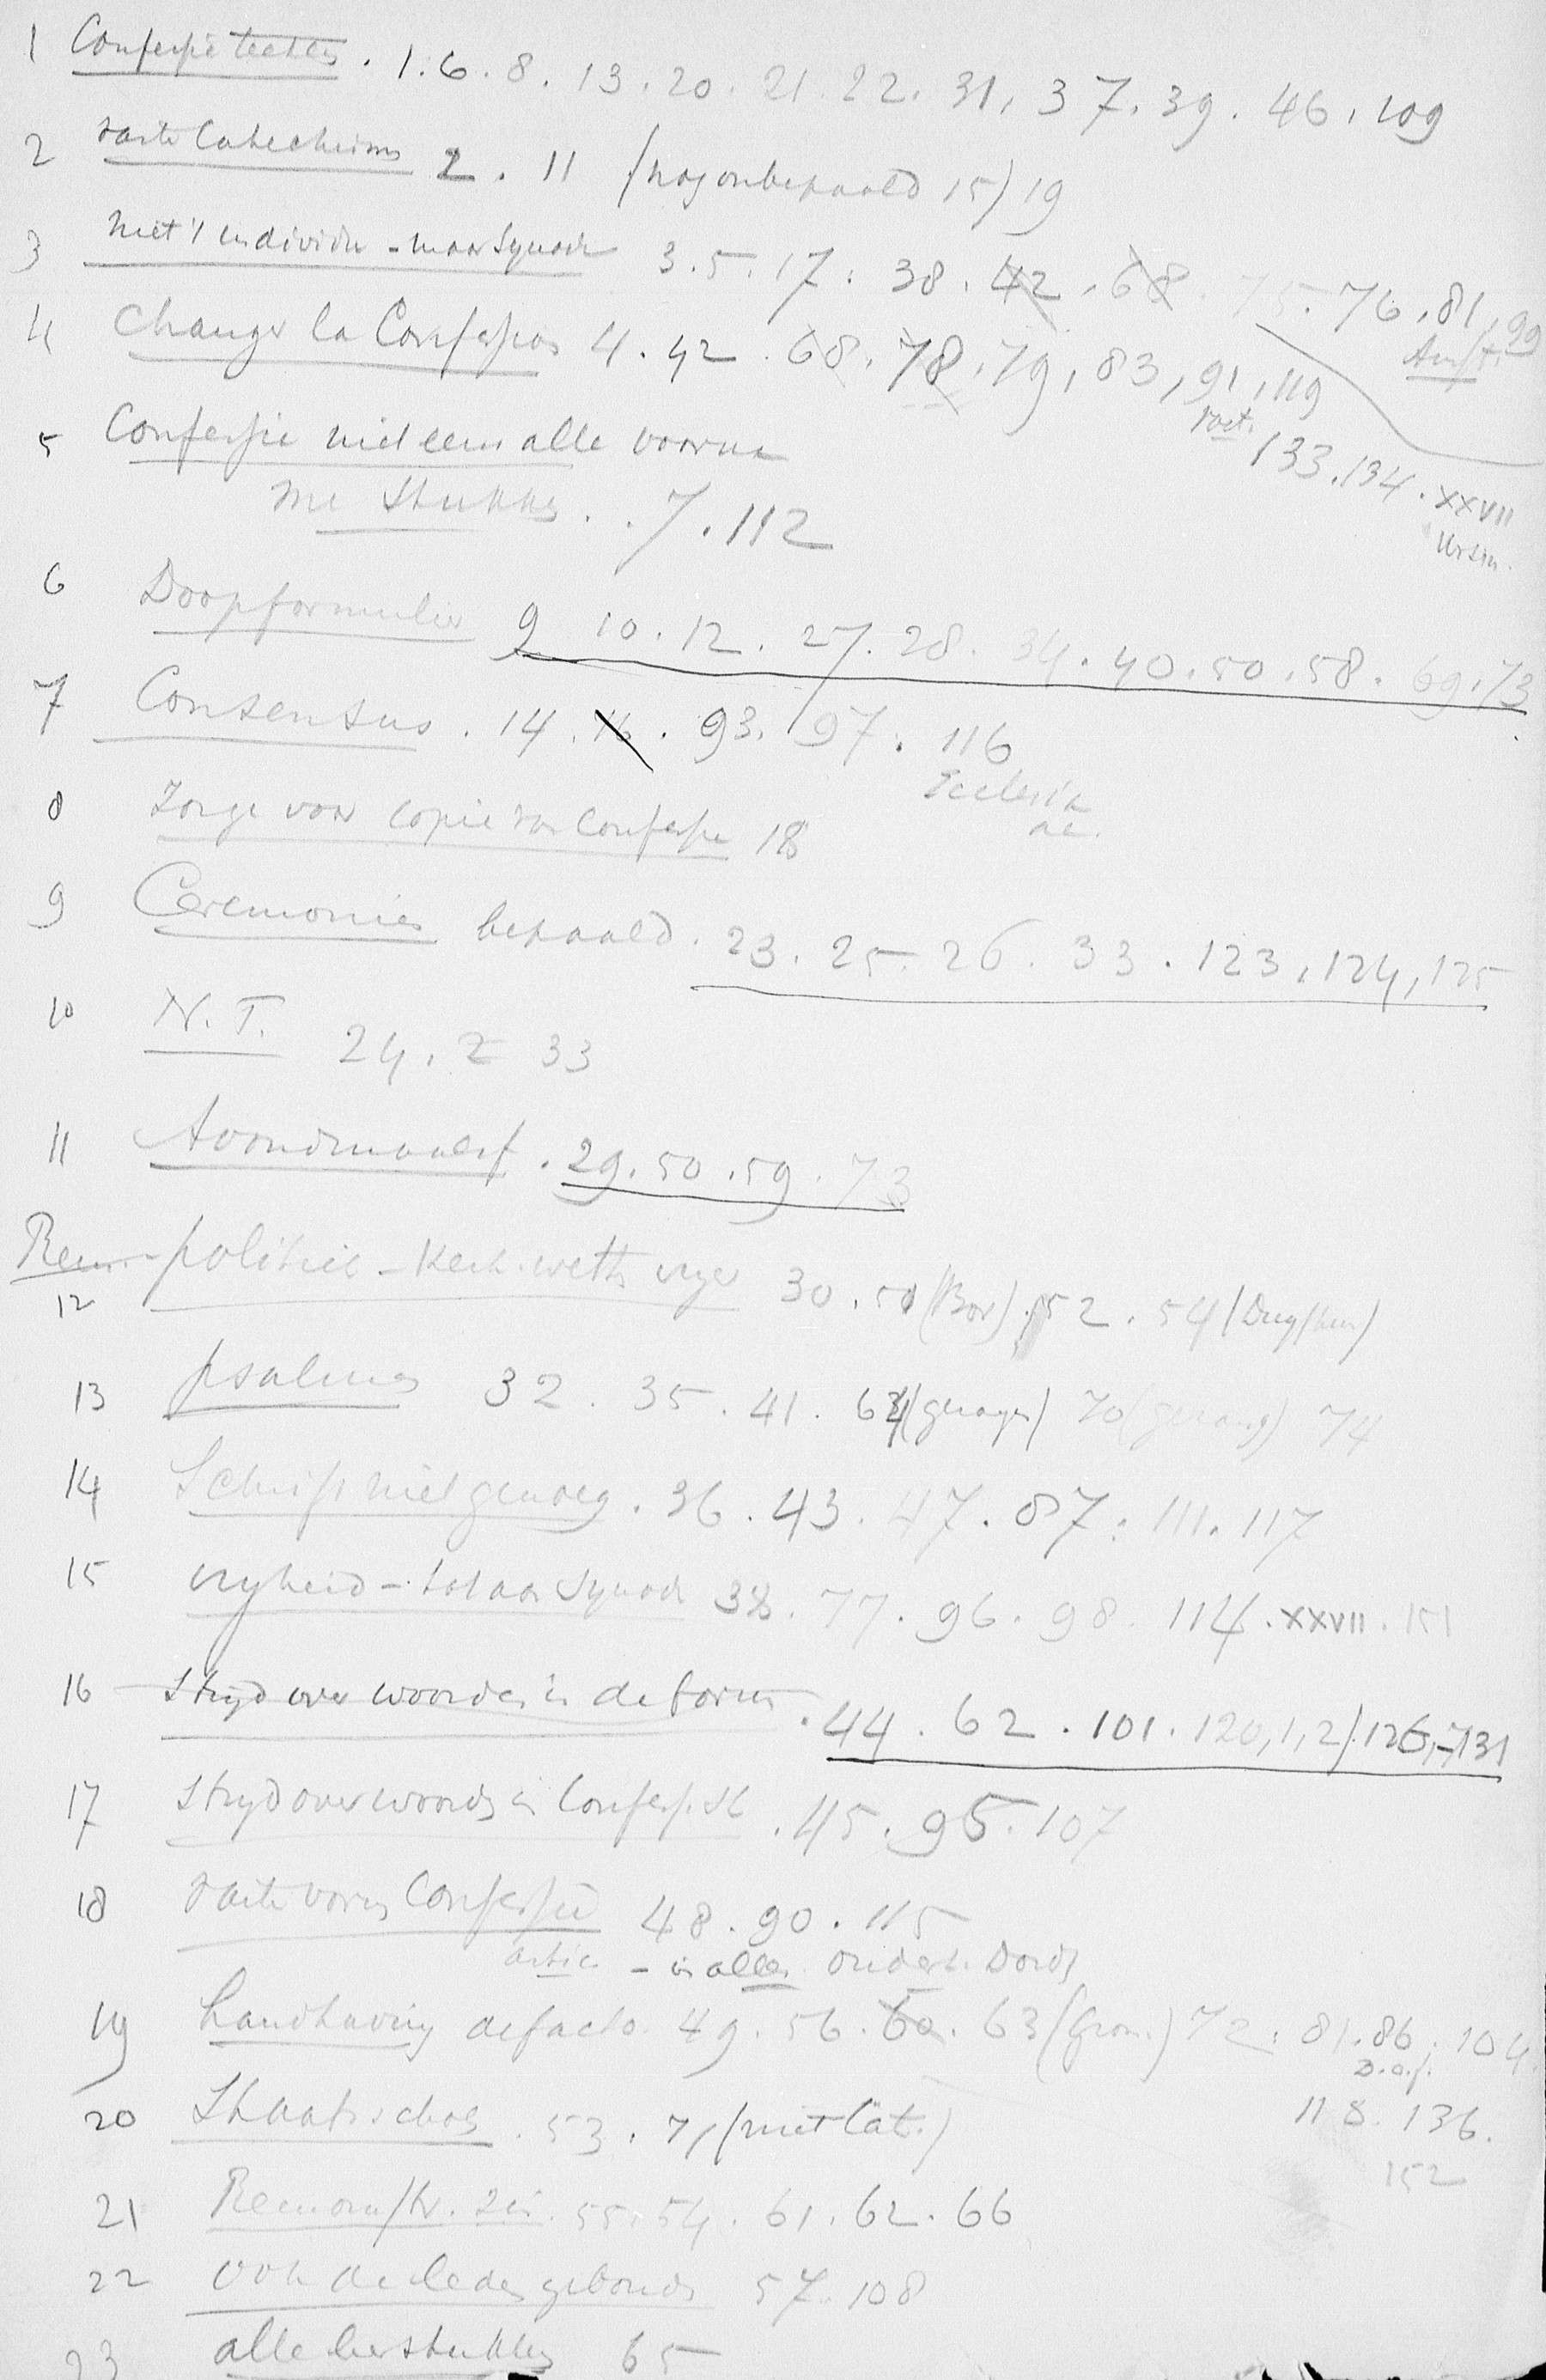 1 Confessie teeken . 1 . 6 . 8 . 13 . 20 . 21 . 22 . 31 . 37 . 39 . 46 . 109
2 vaste Catechismus 2 . 11 (nog onbepaald 15) 19
3 niet 't individu - maar Synode 3 . 5 . 17 . 38 . 42 . 68 . 75 . 76 . 81 . 99
Amst.
4 Changer la Confession 4 . 42 . 68 . 78 . 79 , 83 , 91 , 119
Voet.
133 . 134 . XXVII
Ursin.
5 Confessie niet eens alle voorna
me Stukken . . 7 . 112
6 Doopformulier 9 10 . 12 . 27 . 28 . 34 . 40 . 50 . 58 . 69 . 73
7 Consensus . 14 . 16 . 93 . 97 . 116
Ecclesia
8 Zorge voor copie van Confessie 18
9 Ceremonien bepaald . 23 . 25 . 26 . 33 . 123 , 124 , 125
10 N. T. 24 . 33
11 Avondmaalsf . 29 . 50 . 59 . 73
Rem. - politiek - Kerk. wetten
12 30 . 51 (Bor) . 52 . 54
13 psalmen 32 . 35 . 41 . 64 (gezangen) 70 (gezang) 74
14 Schrift niet genoeg . 36 . 43 . 47 . 87 . 111 . 117
15 vryheid - tot aan Synode 38 . 77 . 96 . 98 . 114 . XXVII . 151
16 Stryd over woorden in de form . 44 . 62 . 101 . 120,1,2 / 126,-131
17 Stryd over woorden in Confess. . 45 . 95 . 107
18 vaste vorm Confessie 48 . 90 . 115
- in alles Dord
19 handhaving de facto . 49 . 56 . 60 . 63 (Gron.) 72 . 81 . 86 . 104
118 . 136 .
152
20 Staatsschool . 53 . 71 (met Cat.)
21 Remonstr. 55 . 54 . 61 . 62 . 66
22 ook de leden gebonden 57 . 108
23 alle leerstukken 65